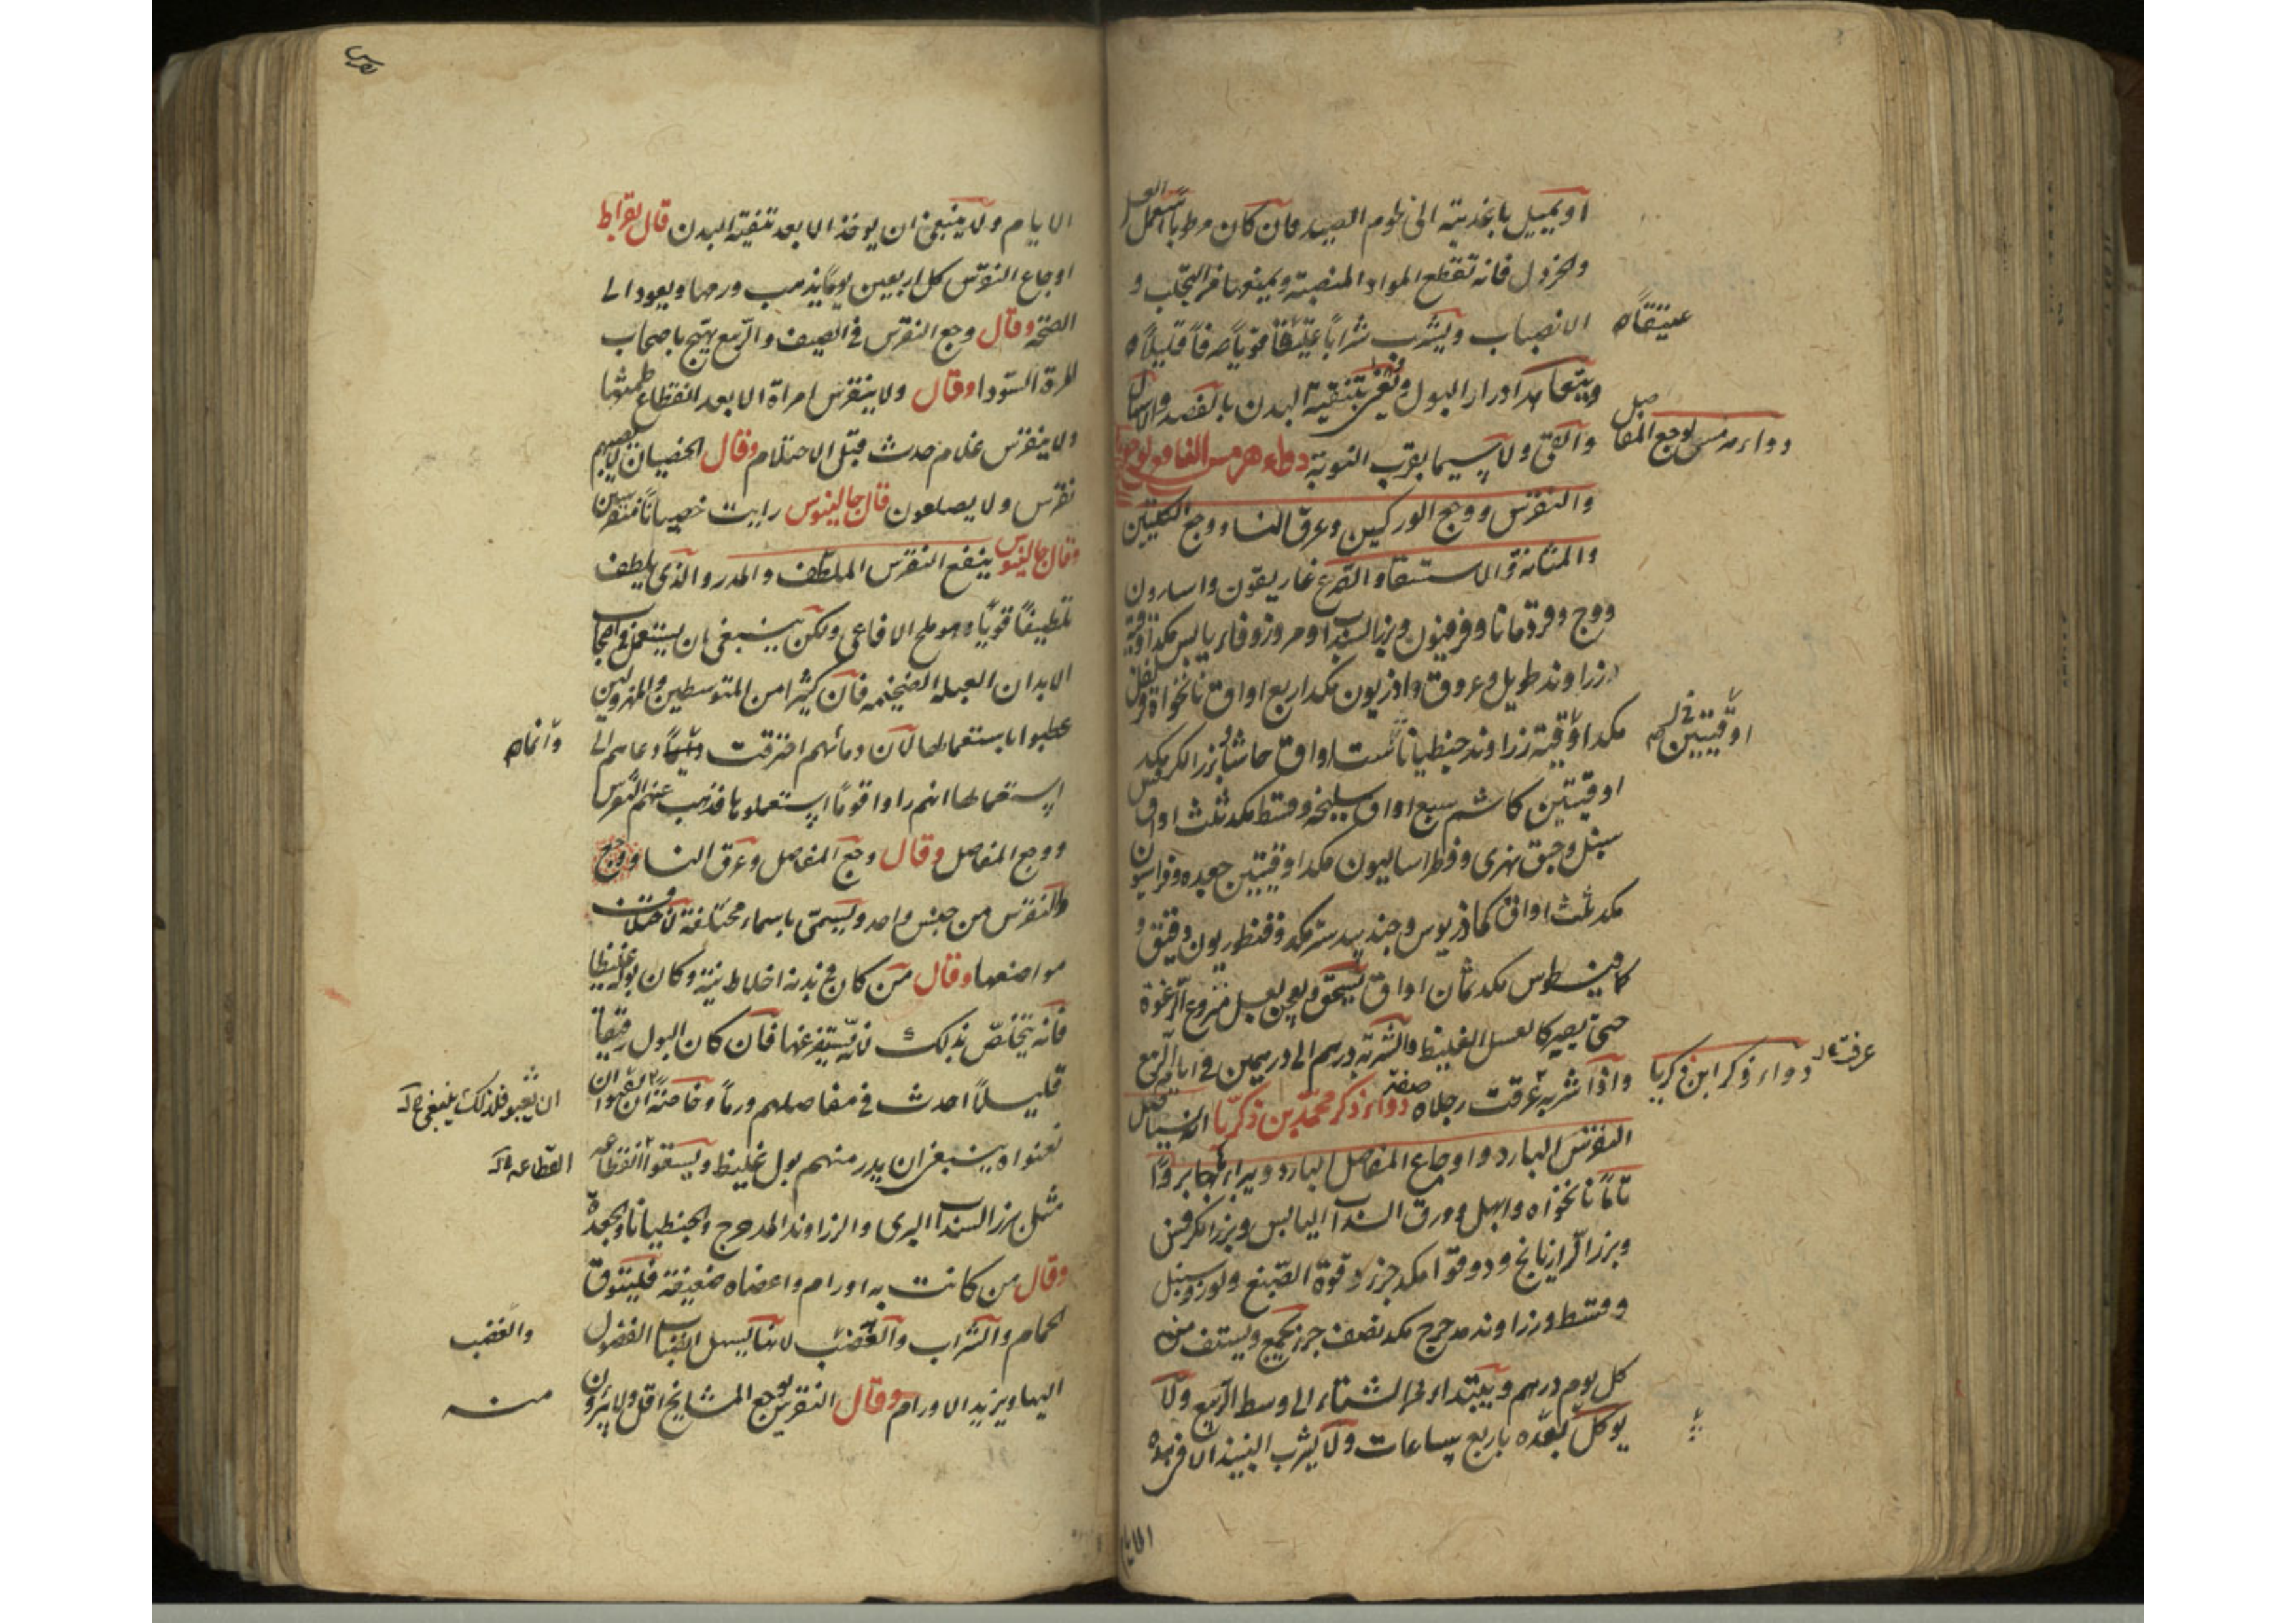 او يميل باغذيته الى لحوم الصيد فان كان مرطوباً استعمل العسل
والخردل فانه تقطع المواد المنصبة ويمنعها من التجلب و
الانصباب ويشرب شراباً عتيقاً قوياً صرفاً قليلاً
عتيقاً
ويتعاهد ادرار البول وتعنى بتنقية البدن بالفصد والاسهال
والقئ ولا سيما بقرب النوبة دواء هرمس النافع لوجع
دواء هرمس لوجع المفاصل
والنقرس ووجع الوركين وعرق النسا ووجع الكليتين
والمثانة والاستسقا والصرع غاريقون واسارون
ووج وقردمانا وفرفيون وبزر السنداب ومر وزوفا يابس مكد اوقية
زراوند طويل وعروق واذريون مكد اربع اواق نانخواه وقرنفل
مكد اوقية زراوند جنطيانا ست اواق حاشا بزر الكرفس مكد
اوقيتين
اوقيتين كاشم سبع اواق سليخه وقسط مكد ثلث اواق
سنبل وحبق نهرى وفطراساليون مكد اوقيتين جعده وفراسيون
مكد ثلث اواق كماذريوس وجندبيدستر مكد وقنطوريون دقيق و
كمافيطوس مكد ثمان اواق يسحق ويعجن بعسل منزوع الرغوة
حتى يصير كالعسل الغليظ والشربة درهم الى درهمين فى ايام الربيع
واذا شربه عرقت رجلاه صفة دواء ذكر محمد بن زكريا انه يستأصل
دواء ذكر ابن زكريا
عرقت
النقرس البارد واوجاع المفاصل البارد ويبرأ بها برءاً
تاماً نانخواه وابهل وورق السنداب اليابس وبزر الكرفس
وبزر الرازيانج ودوقوا مكد جزء وفوة الصبغ ولوز وسنبل
وقسط وزراوند مدحرج مكد نصف جزء يجمع ويستف منه
كل يوم درهم ويبتداء من الشتاء الى وسط الربيع ولا
يوكل بعده باربع ساعات ولا يشرب النبيذ الا فى
الايام
الايام ولا ينبغى ان يوخذ الا بعد تنقية البدن قال بقراط
اوجاع النقرس كل اربعين يوماً يذهب ورمها ويعود الى
الصحة وقال وجع النقرس فى الصيف والربيع يهيج باصحاب
المرة السودا وقال ولا ينقرس امراة الا بعد انقطاع طمثها
ولا ينقرس غلام حدث قبل الاحتلام وقال الخصيان لا يصيبهم
نقرس ولا يصلعون قال جالينوس رايت خصياناً منقرسين
وقال جالينوس ينفع النقرس الملطف والمدر والذى يلطف
تلطيفاً قوياً وهو ملح الافاعى ولكن ينبغى ان يستعمل فى اصحاب
الابدان العبلة الضخمه فان كثيرا من المتوسطين والمهزولين
عطبوا باستعمالها لان دمائهم احترقت وانما دعاهم الى
وانما
استعمالها انهم راوا قوماً استعملوها فذهب عنهم النقرس
ووجع المفاصل وقال وجع المفاصل وعرق النسا ووجع
والنقرس من جنس واحد ويسمى باسماء مختلفة لاختلاف
مواضعها وقال من كان فى بدنه اخلاط نية وكان بوله غليظا
فانه يتخلص بذلك لانه يستفرغها فان كان البول رقيقا
قليلاً احدث فى مفاصلهم ورماً وخاصة ان
ان تعبو فلذلك ينبغى
تعنوا وينبغى ان يدر منهم بول غليظ ويسقوا القطاعه
القطاعه
مثل بزر السنداب البرى والزراوند المدحرج والجنطيانا والجعدة
وقال من كانت به اورام واعضاه ضعيفة فليتوق
الحمام والشراب والغضب لانها يسهل انصباب الفضول
والغضب
اليها ويزيد الاورام وقال النقرس يوجع المشايخ اقل ولا يبرؤن
منه